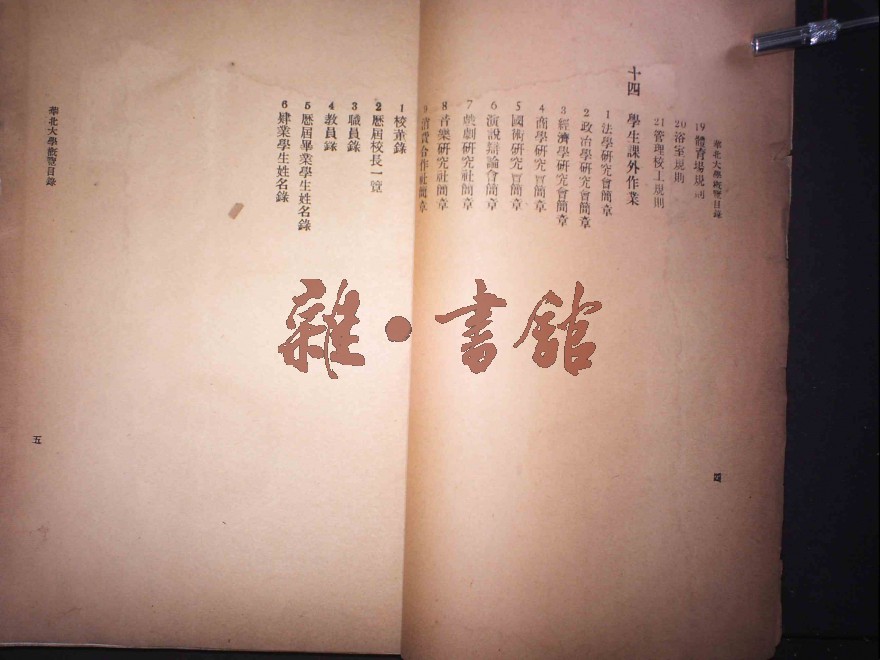 華北大學概覽目錄
19 體育場規則
20 浴室規則
21 管理校工規則
十四 學生課外作業
1 法學研究會簡章
2 政治學研究會簡章
3 經濟學研究會簡章
4 商學研究會簡章
5 國術研究會簡章
6 演說辯論會簡章
7 戲劇研究社簡章
8 音樂研究社簡章
9 消費合作社簡章
四
1 校董錄
2 歷屆校長一覽
3 職員錄
4 教員錄
5 歷屆畢業學生姓名錄
6 肄業學生姓名錄
華北大學概覽目錄
五
雜·書舘